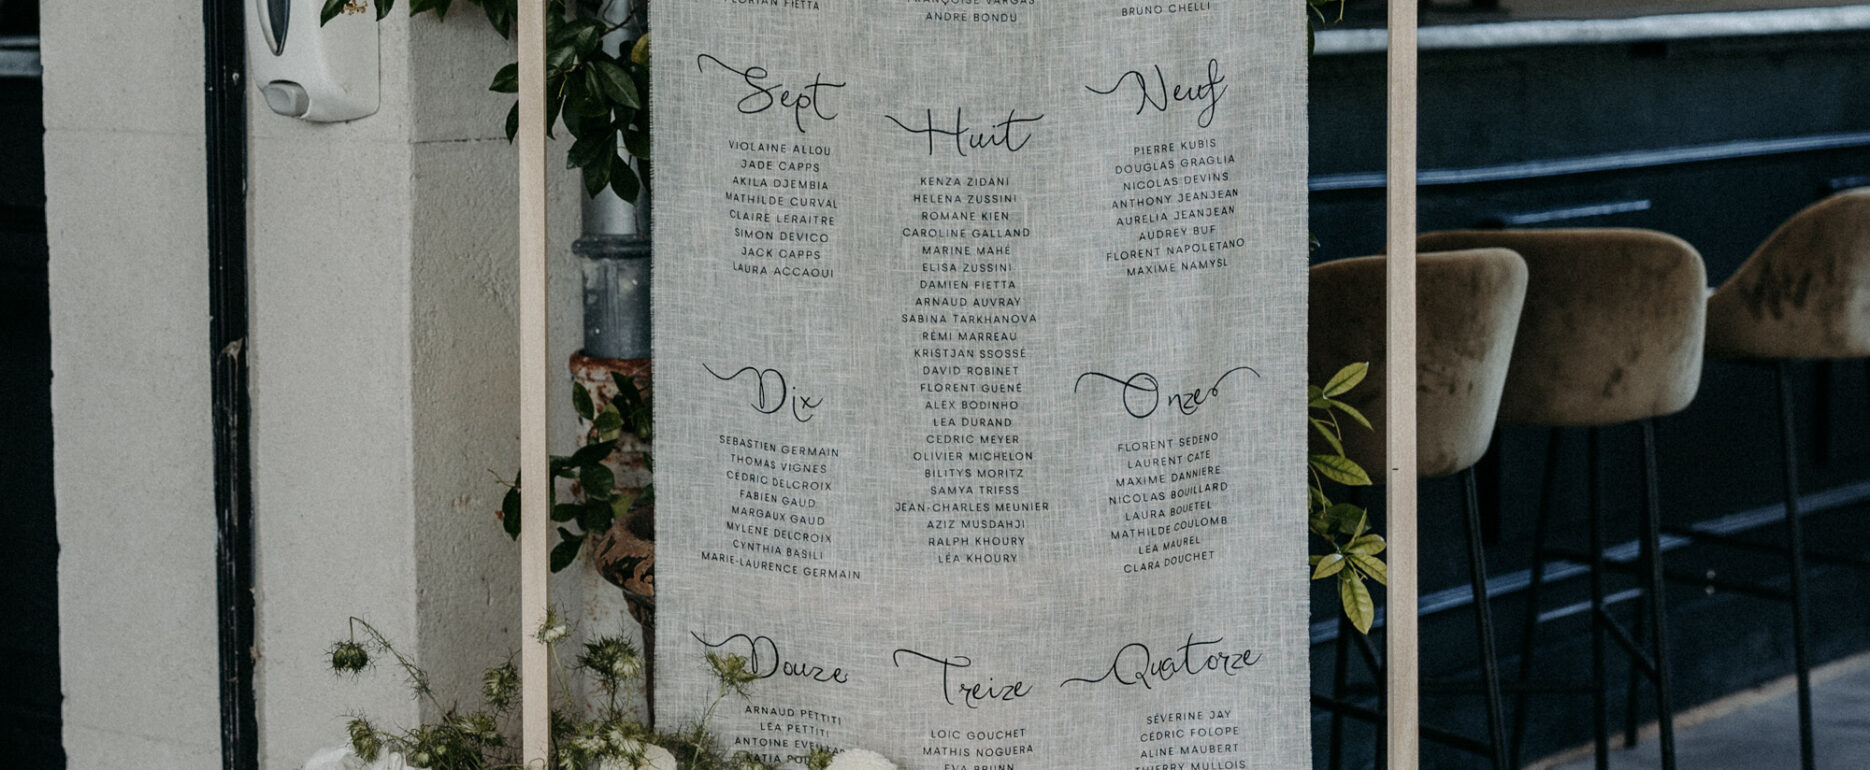 FLORIAN FIETTA
FRANÇOISE VARGAS
ANDRE BONDU
BRUNO CHELLI
Sept
VIOLAINE ALLOU
JADE CAPPS
AKILA DJEMBIA
MATHILDE CURVAL
CLAIRE LERAITRE
SIMON DEVICO
JACK CAPPS
LAURA ACCAOUI
Huit
KENZA ZIDANI
HELENA ZUSSINI
ROMANE KIEN
CAROLINE GALLAND
MARINE MAHÉ
ELISA ZUSSINI
DAMIEN FIETTA
ARNAUD AUVRAY
SABINA TARKHANOVA
RÉMI MARREAU
KRISTJAN SSOSSÉ
DAVID ROBINET
FLORENT GUENÉ
ALEX BODINHO
LEA DURAND
CEDRIC MEYER
OLIVIER MICHELON
BILITYS MORITZ
SAMYA TRIFSS
JEAN-CHARLES MEUNIER
AZIZ MUSDAHJI
RALPH KHOURY
LÉA KHOURY
Neuf
PIERRE KUBIS
DOUGLAS GRAGLIA
NICOLAS DEVINS
ANTHONY JEANJEAN
AURELIA JEANJEAN
AUDREY BUF
FLORENT NAPOLETANO
MAXIME NAMYSL
Dix
SEBASTIEN GERMAIN
THOMAS VIGNES
CÉDRIC DELCROIX
FABIEN GAUD
MARGAUX GAUD
MYLENE DELCROIX
CYNTHIA BASILI
MARIE-LAURENCE GERMAIN
Onze
FLORENT SEDENO
LAURENT CATE
MAXIME DANNIERE
NICOLAS BOUILLARD
LAURA BOUETEL
MATHILDE COULOMB
LÉA MAUREL
CLARA DOUCHET
Douze
ARNAUD PETTITI
LÉA PETTITI
ANTOINE
KATIA
Treize
LOIC GOUCHET
MATHIS NOGUERA
EVA BRUNN
Quatorze
SÉVERINE JAY
CÉDRIC FOLOPE
ALINE MAUBERT
THIERRY MULLOIS